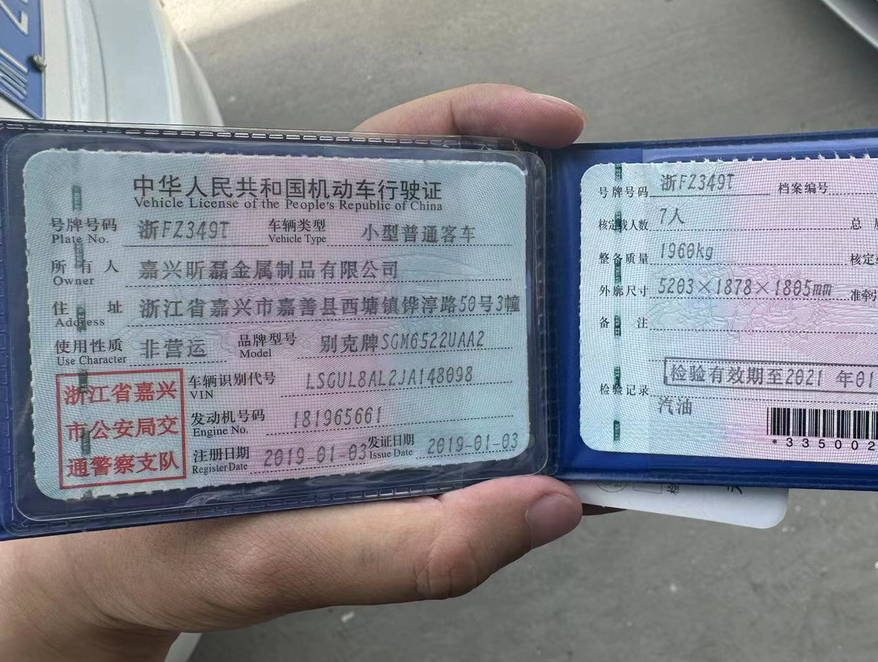 中华人民共和国机动车行驶证
Vehicle License of the People's Republic of China
号牌号码 浙FZ349T 车辆类型 小型普通客车
Plate No. Vehicle Type
所有人 嘉兴昕磊金属制品有限公司
Owner
住址 浙江省嘉兴市嘉善县西塘镇铧淳路50号3幢
Address
使用性质 非营运 品牌型号 别克牌SGM6522UAA2
Use Character Model
浙江省嘉兴
市公安局交
通警察支队
车辆识别代号 LSGUL8AL2JA148098
VIN
发动机号码 181965661
Engine No.
注册日期 2019-01-03 发证日期 2019-01-03
Register Date Issue Date
号牌号码 浙FZ349T 档案编号
核定载人数 7人 总
整备质量 1960kg 核定
外廓尺寸 5203×1878×1805mm 准牵
备注
检验记录 检验有效期至2021年01
汽油
*335002